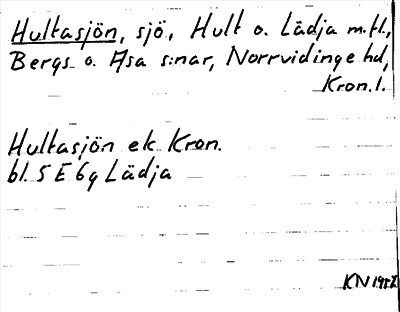 Hultasjön, sjö, Hult o. Lädja m.fl.,
Bergs o. Asa s:nar, Norrvidinge hd,
Kron. l.
Hultasjön ek. Kron.
bl. 5 E 6g Lädja